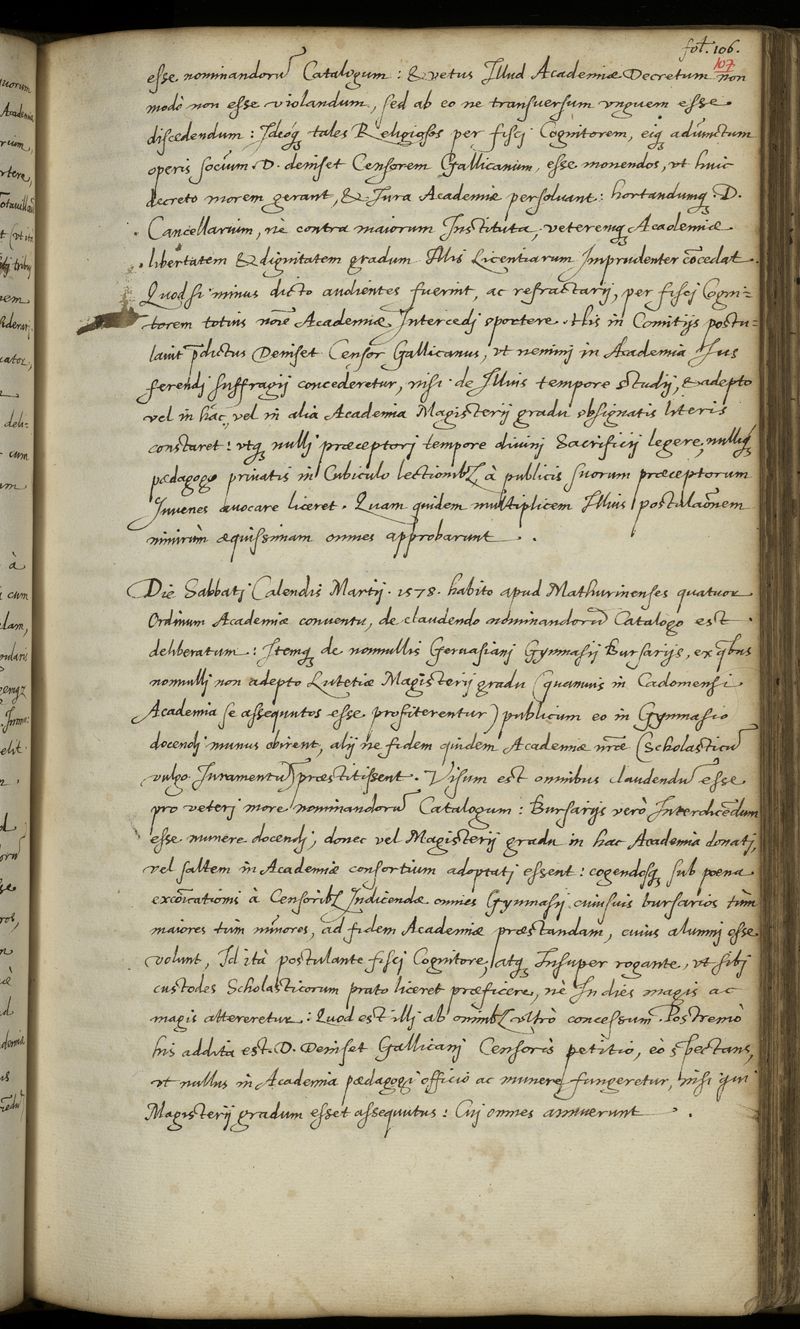 fol. 106.
107
esse nominandorũ Catalogum : & vetus Illud Academiæ Decretum non
modò non esse violandum, sed ab eo ne transuersum vnguem esse
discedendum : Ideoq̃ tales Religiosos per fiscj Cognitorem, eiq̃ adiunctum
operis socium D. deniset Censorem Gallicanum, esse monendos, vt huic
decreto morem gerant, & Iura Academiæ persoluant : hortandumq̃ D.
Cancellarium, ne contra maiorum Instituta, veteremq̃ Academiæ
libertatem & dignitatem gradum Illis Licentiarum Imprudenter cõcedat.
Quod si minus dicto audientes fuerint, ac refractarij, per fiscj Cogni=
torem totius nõie Academiæ Intercedj oportere. His in Comitijs postu=
lauit p̃dictus Deniset Censor Gallicanus, vt neminj in Academia Ius
ferendj suffragij concederetur, nisi de Illius tempore studij, & adepto
vel in hac, vel in alia Academia Magisterij gradu obsignatis literis
constaret : vtq̃ nullj præceptorj tempore diuinj Sacrificij legere, nulliq̃
pædagogo priuatis in Cubiculo lectionibꝫ à publicis suorum præceptorum
Iuuenes auocare liceret. Quam quidem multiplicem Illius postulaõnem
nimirùm æquissimam omnes approbarunt.
Die Sabbatj Calendis Martij. 1578. habito apud Mathurinenses quatuor
Ordinum Academiæ conuentu, de claudendo nominandorũ Catalogo est
deliberatum : Itemq̃ de nonnullis Geruasianj Gymnasij Bursarijs, ex qbus
nonnullj non adepto Lutetiæ Magisterij gradu (quamuis in Cadomensi
Academia se assequutos esse profiterentur) publicum eo in Gymnasio
docendj munus obirent, alij ne fidem quidem Academiæ nr̃æ (Scholasticũ
vulgo Iuramentũ) præstitissent. Visum est omnibus claudendũ esse
pro veterj more nominandorũ Catalogum : Bursarijs verò Interdicẽdum
esse munere docendj, donec vel Magisterij gradu in hac Academia donatj,
vel saltem in Academiæ consortium adoptatj essent : cogendosq̃ sub poena
excõicationis à Censoribꝫ Indicendæ omnes Gymnasij cuiusuis bursarios tùm
maiores tùm minores, ad fidem Academiæ præstandam, cuius alumnj esse
volunt, Id ità postulante fiscj Cognitore, atq̃ Insuper rogante, vt sibj
custodes Scholasticorum prato liceret præficere, nè In dies magis ac
magis attereretur : Quod est illj ab omnibꝫ vltrò concessum. Postremò
his addita est D. Deniset Gallicanj Censoris petitio, eò spectans,
vt nullus in Academia pædagogj officio ac munere fungeretur, nisi qui
Magisterij gradum esset assequutus : Cuj omnes annuerunt.